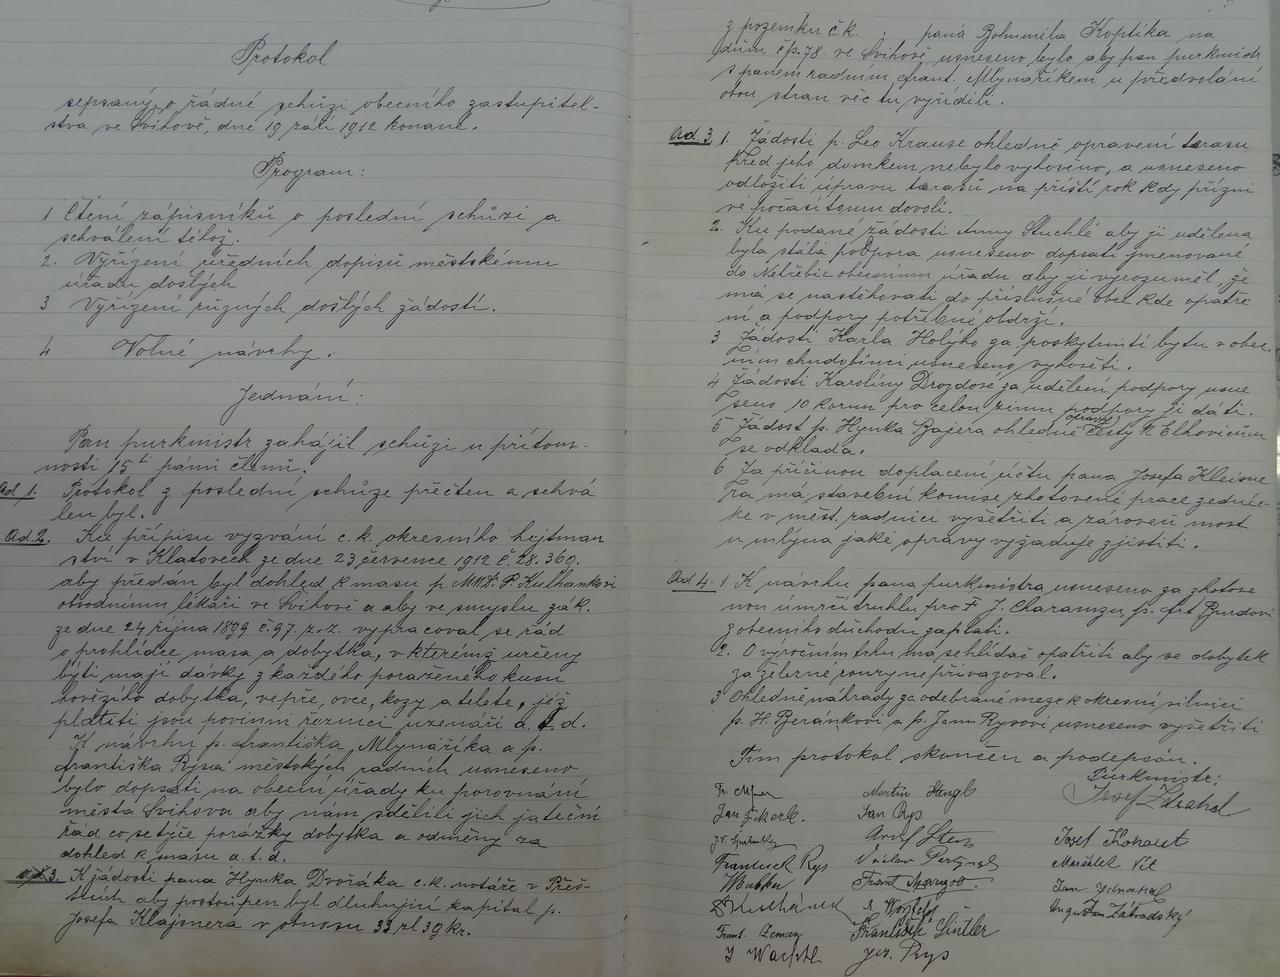 Protokol
sepsaný o řádné schůzi obecního zastupitel-
stva ve Švihově, dne 19 září 1912 konané.
Program:
1 Čtení zápisníků o poslední schůzi a
schválení téhož.
2. Vyřízení úředních dopisů městskému
úřadu došlých
3 Vyřízení různých došlých žádostí.
4 Volné návrhy.
Jednání:
Pan purkmistr zahájil schůzi u přítom-
nosti 15ti pánů členů.
Ad 1. Protokol z poslední schůze přečten a schvá
len byl.
Ad.2. Ku přípisu vyzvání c.k. okresního hejtman
ství v Klatovech ze dne 23 července 1912 č. 28.360.
aby předán byl dohled k masu p. MUDr. P. Kulhankovi
obvodnímu lékaři ve Švihově a aby ve smyslu zák.
ze dne 24 října 1899 č. 97. z.z. vypracoval se řád
o prohlídce masa a dobytka, v kterémž určeny
býti mají dávky z každého poraženého kusu
hovězího dobytka, vepře, ovce, kozy a telete, jež
platiti jsou povinni řezníci uzenáři a.t.d.
K návrhu p. Františka, Mlynáříka a p.
Františka Rysa městských radních usneseno
bylo dopsati na obecní úřady ku porovnání
města Švihova aby nám sdělili jich jateční
řád co se týče porážky dobytka a odměny za
dohled k masu a.t.d.
3. K žádosti pana Hynka Dvořáka c.k. notáře v Přeš-
ticích aby postoupen byl dluhující kapitál p.
Josefa Klajsnera v obnosu 33 zl 39 kr.
z pozemku č.k. . pana Bohumila Koptíka na
dům čp. 78. ve Švihově, usneseno bylo aby pan purkmistr
s panem radním Frant. Mlynaříkem u předvolání
obou stran věc tu vyřídili.
Ad 3 1. Žádosti p. Leo Krause ohledně opravení tarasu
před jeho domkem nebylo vyhověno, a usneseno
odložiti úpravu tarasů na příští rok kdy přízni
vé počasí tomu dovolí.
2. Ku podané žádosti Anny Stuchlé aby jí udělena
byla stálá podpora usneseno dopsati jmenované
do Netřebic obecnímu úřadu aby jí vyrozuměl že
má se nastěhovati do příslušné obce kde opatře
ní a podpory potřebné obdrží.
3 Žádosti Karla Holýho za poskytnutí bytu v obec
ním chudobinci usneseno vyhověti.
4 Žádosti Karoliny Drozdové za udělení podpory usne
seno 10 korun pro celou zimu podpory jí dáti.
5 Žádost p. Hynka Bajera ohledně opravy cesty k Elhovicům
se odkládá.
6 Za příčinou doplacení účtu pana Josefa Kleisne
ra má stavební komise zhotovené práce zednic-
ké v měst. radnici vyšetřiti a zároveň most
u mlýna jaké opravy vyžaduje zjistiti.
Ad 4. 1 K návrhu pana purkmistra usneseno za zhotove
nou úmrčí truhlu pro F. J. Charamzu, p. Fr. Burdovi
z obecního důchodu zaplati.
2. O výročním trhu má se hlídač opatřiti aby se dobytek
za železné roury nepřivazoval.
3 Ohledně náhrady za odebrané meze k okresní silnici
p. H. Beránkovi a p. Janu Rysovi usneseno vyšetřiti
Tím protokol skončen a podepsán.
Purkmistr:
Josef Zdrahal
Martin Hengl
Jan Eckerl.
Jan Rys.
Adolf Stein
Josef Kohout
Frantisek Rys
Maršálek Vít
Wabka
Frant. Zeman
František Šintler
J Wachtl
Jos. Rys